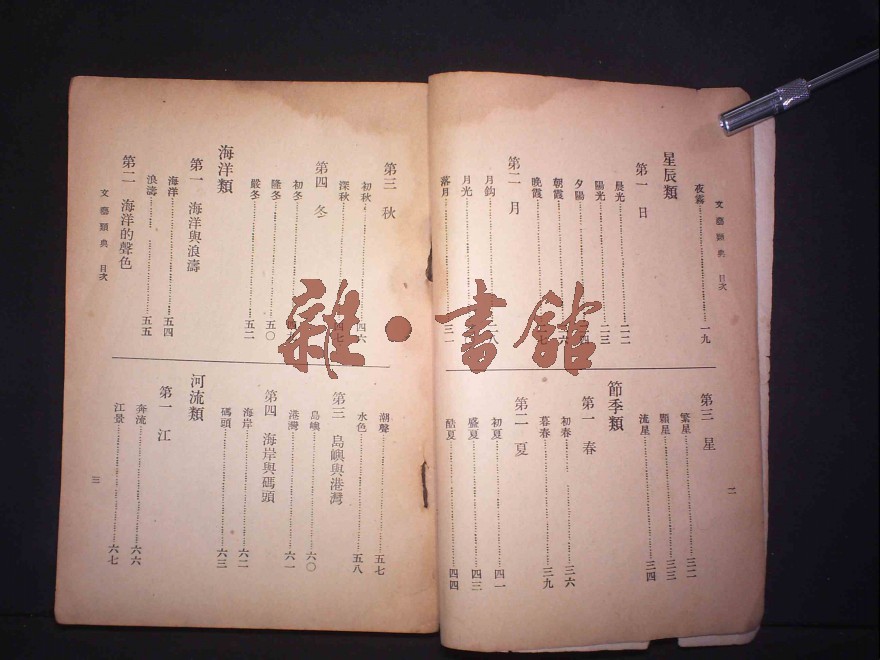 文藝類典 目次
二
夜霧……一九
星辰類
第一 日
晨光……二二
陽光……二三
夕陽……
朝霞……
晚霞……
第二 月
月鈎……
月光……
落月……三一
第三 星
繁星……三二
顆星……三三
流星……三四
節季類
第一 春
初春……三六
暮春……三九
第二 夏
初夏……四一
盛夏……四三
酷夏……四四
第三 秋
初秋……四六
深秋……四七
第四 冬
初冬……
隆冬……五〇
嚴冬……五二
海洋類
第一 海洋與浪濤
海洋……五四
浪濤……五五
第二 海洋的聲色
文藝類典 目次
潮聲……五七
水色……五八
第三 島嶼與港灣
島嶼……六〇
港灣……六一
第四 海岸與碼頭
海岸……六二
碼頭……六三
河流類
第一 江
奔流……六六
江景……六七
三
雜·書館